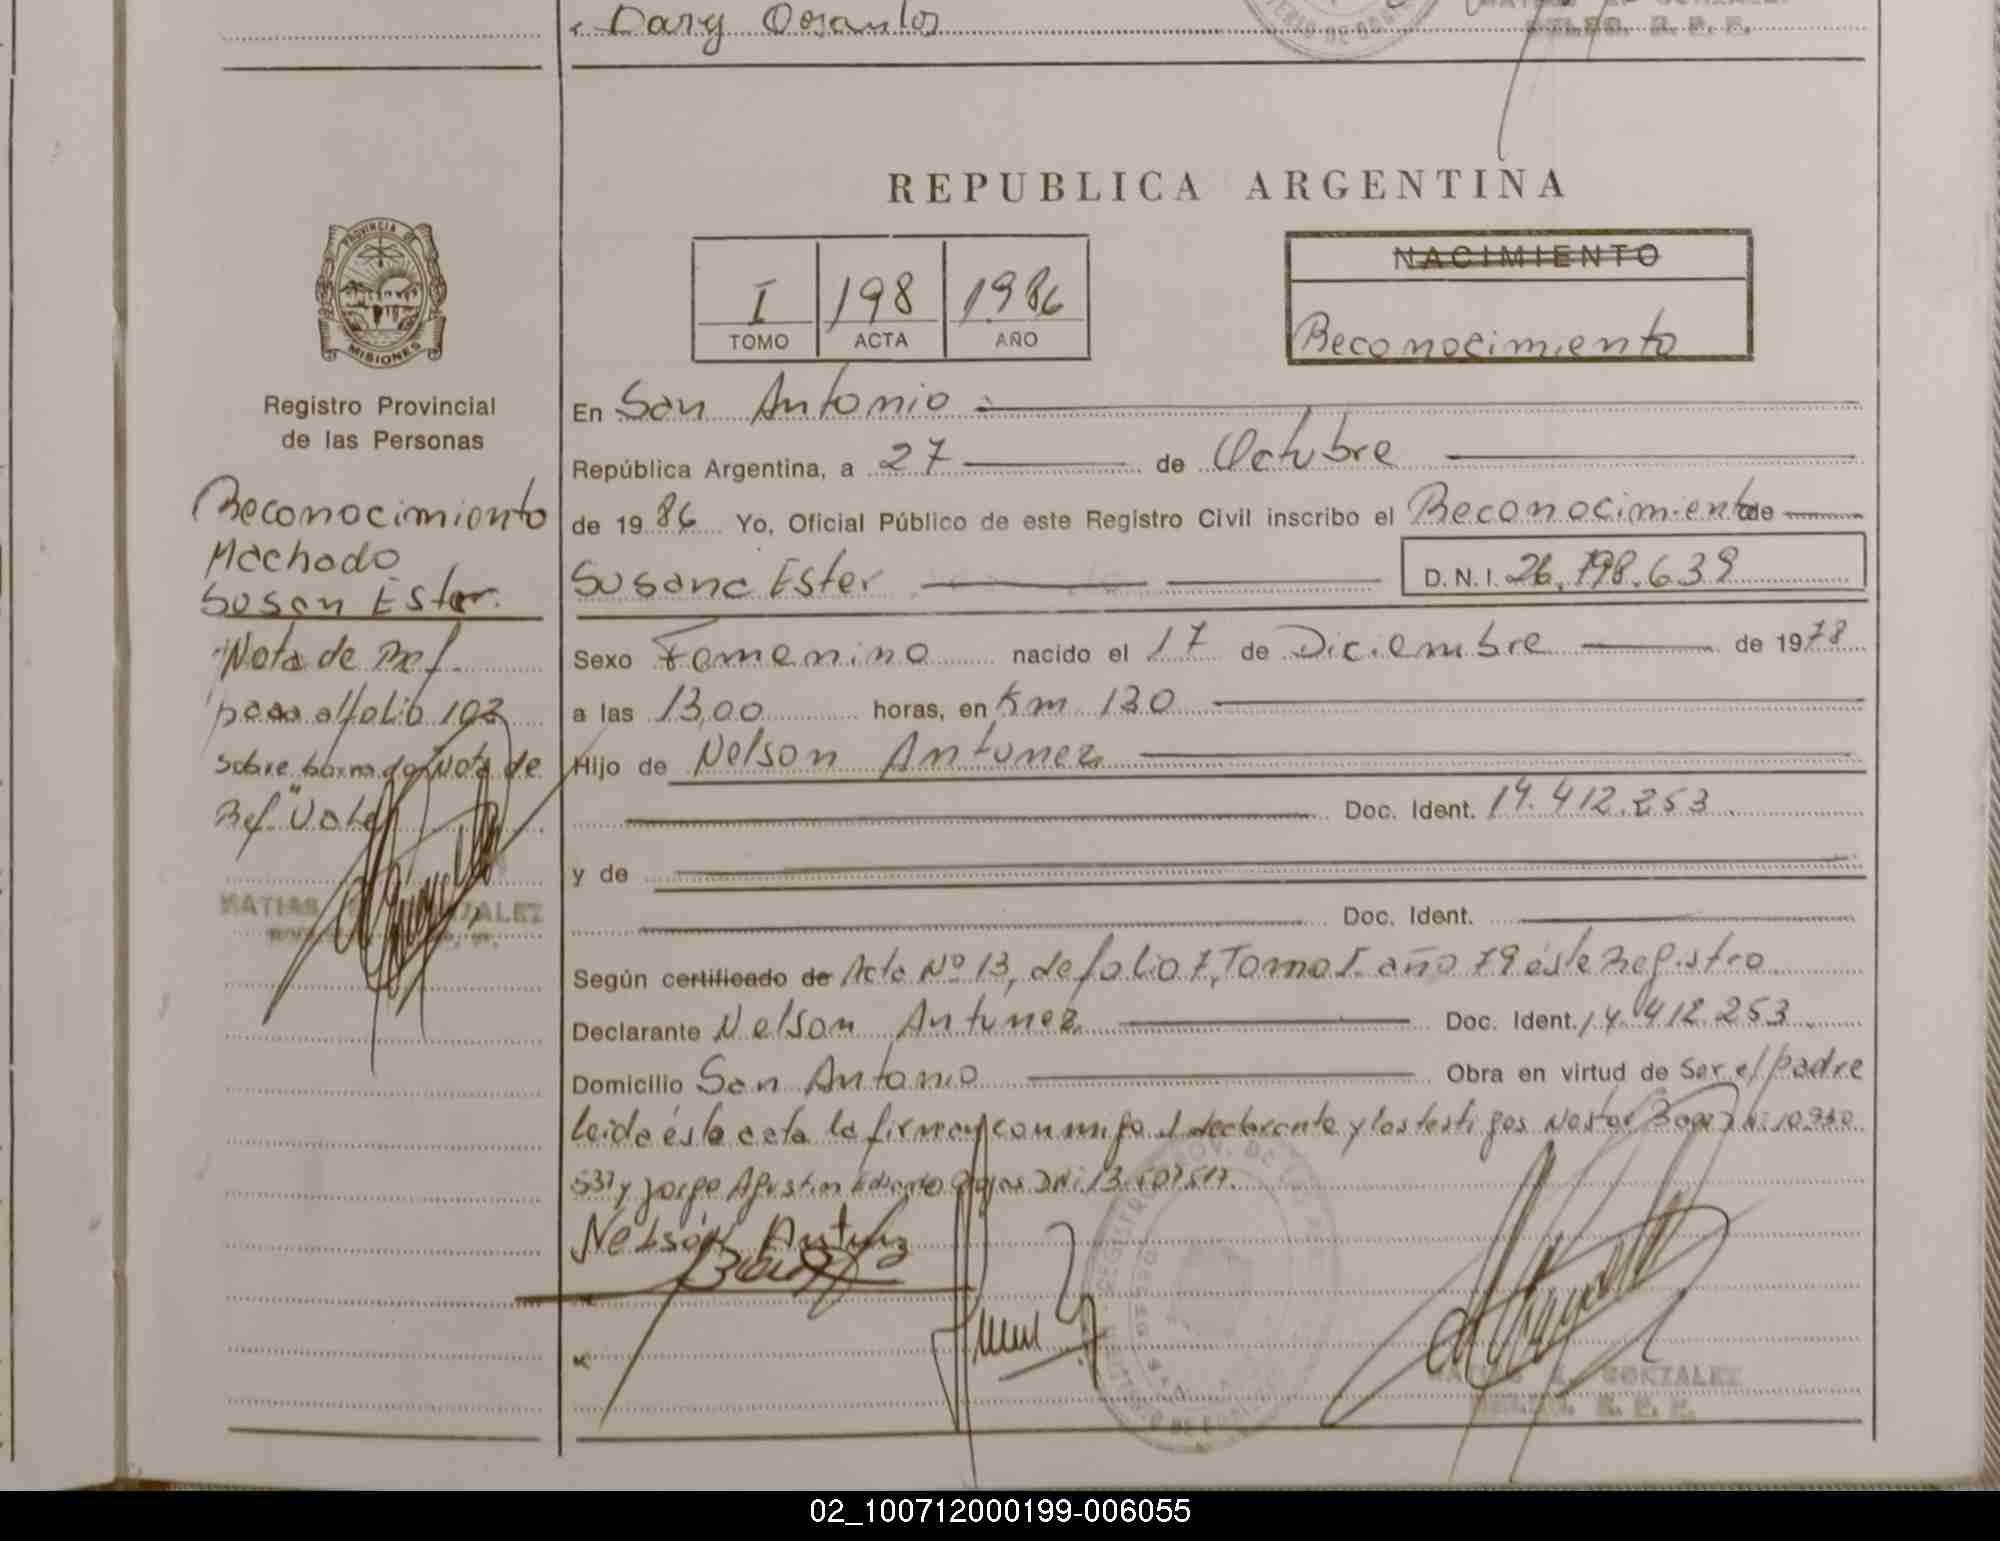 Dary Dosantos
REPUBLICA ARGENTINA
PROVINCIA DE
MISIONES
Registro Provincial
de las Personas
I 198 1986
TOMO ACTA AÑO
NACIMIENTO
Reconocimiento
En San Antonio
República Argentina, a 27 de Octubre
de 19 86 Yo, Oficial Público de este Registro Civil inscribo el Reconocimiento de
Susana Ester D.N.I. 26.798.639
Sexo Femenino nacido el 17 de Diciembre de 1978
a las 13,00 horas, en Km 130
Hijo de Nelson Antunez
Doc. Ident. 14.412.253
y de
Doc. Ident.
Según certificado de Acta Nº 13, de folio 7, Tomo I. año 79 éste Registro
Declarante Nelson Antunez Doc. Ident. 14.412.253
Domicilio San Antonio Obra en virtud de Ser el padre
leida ésta acta la firman conmigo el declarante y los testigos Nestor
537 y Jorge Agustin Eduardo Rojas DNI:
Nelson Antunez
MATIAS GONZALEZ
Reconocimiento
Machado
Susan Ester.
Nota de Ref.
pasa al folio 102
sobre borrado Nota de
Ref. "Vale
MATIAS GONZALEZ
02_100712000199-006055